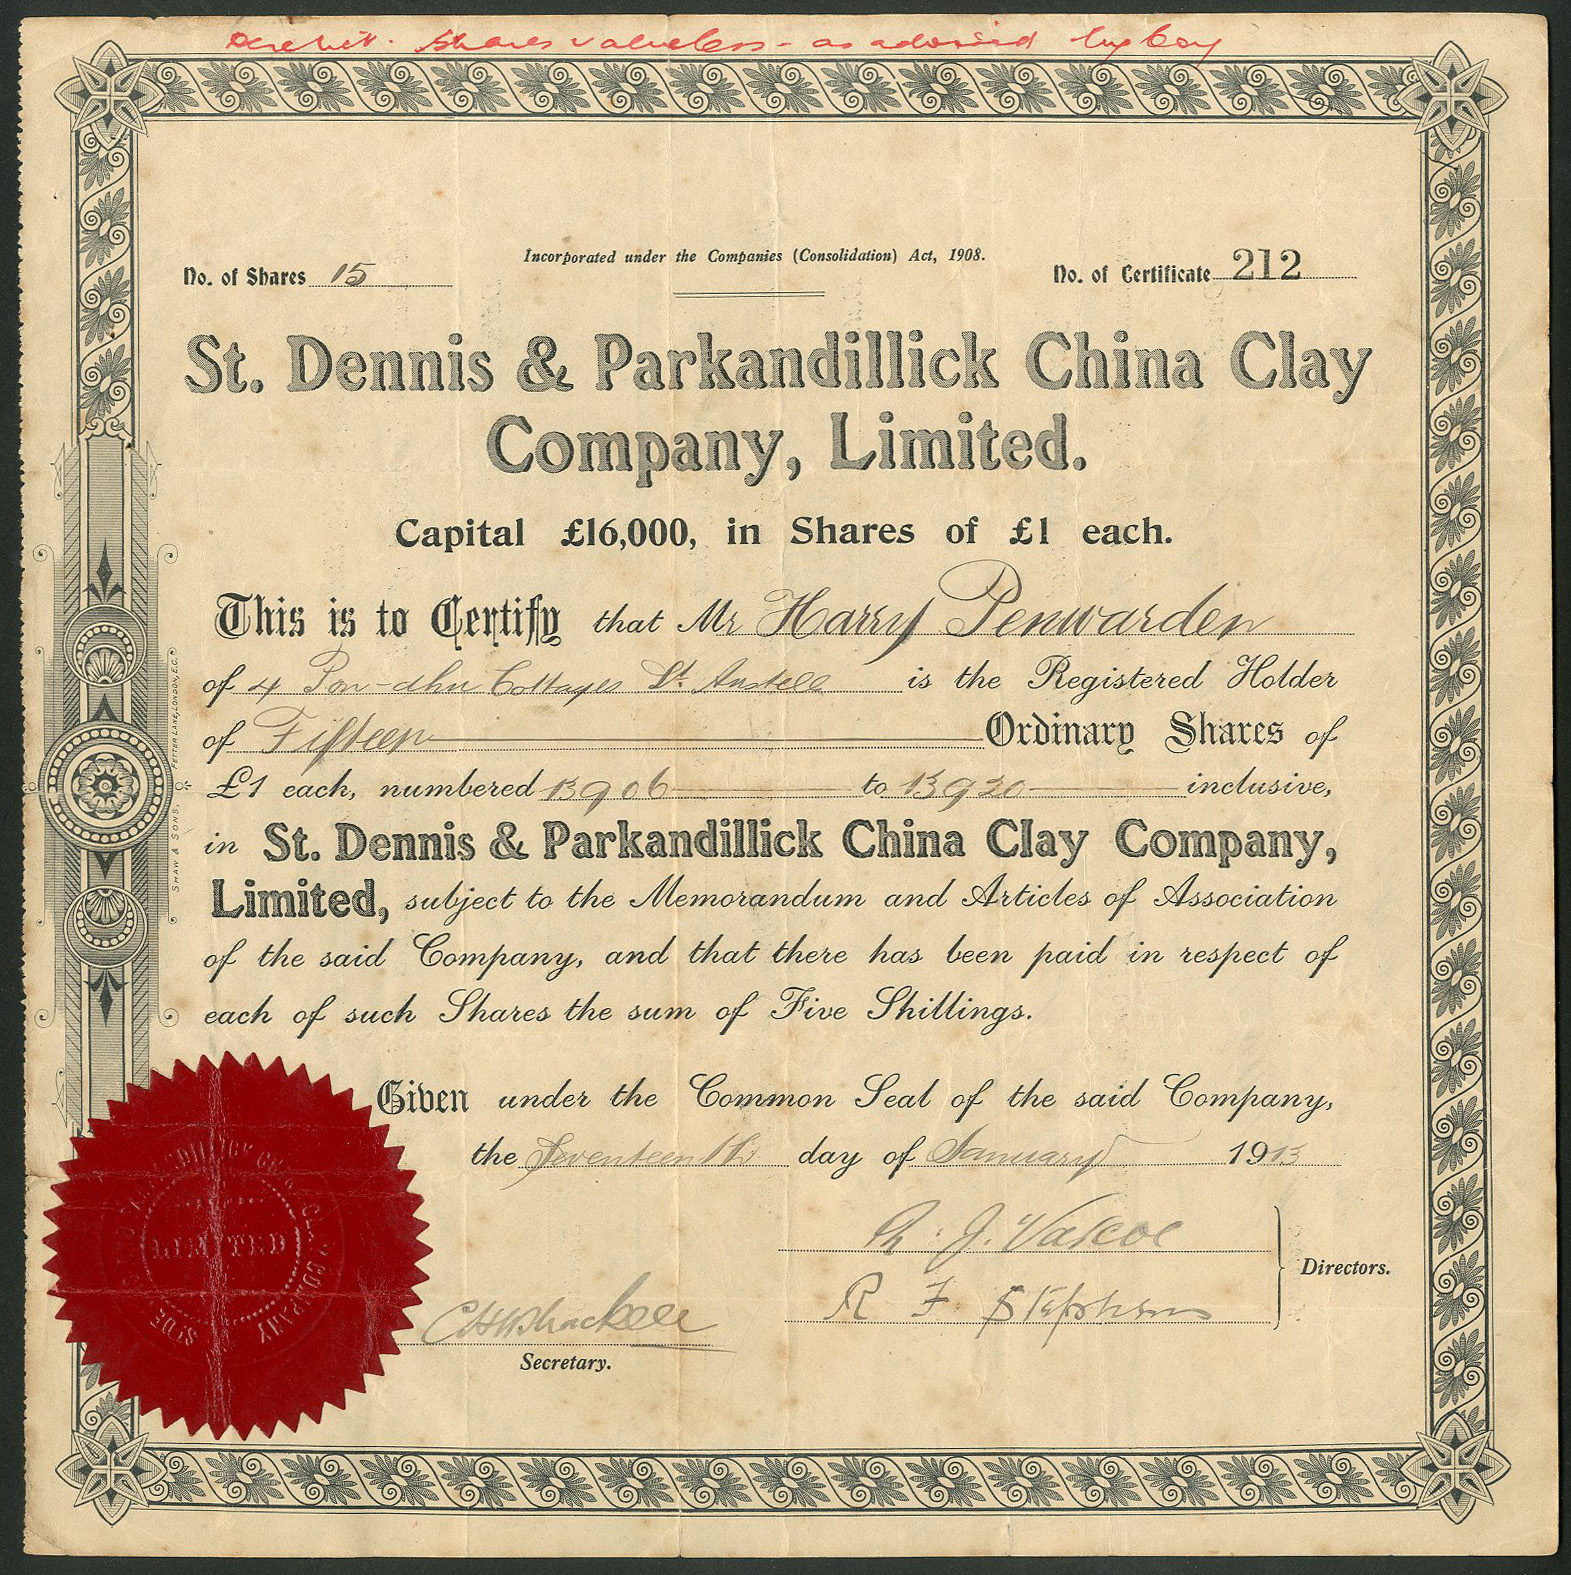 shares valueless - as advised by Coy
Incorporated under the Companies (Consolidation) Act, 1908.
No. of Shares 15
No. of Certificate 212
St. Dennis & Parkandillick China Clay
Company, Limited.
Capital £16,000, in Shares of £1 each.
This is to Certify that Mr Harry Penwarden
of 4 Cottages St. Austell is the Registered Holder
of Fifteen Ordinary Shares of
£1 each, numbered 13906 to 13920 inclusive,
in St. Dennis & Parkandillick China Clay Company,
Limited, subject to the Memorandum and Articles of Association
of the said Company, and that there has been paid in respect of
each of such Shares the sum of Five Shillings.
Given under the Common Seal of the said Company,
the Seventeenth day of January 1913
J. Vascoe
R F Stephens
Directors.
Secretary.
SHAW & SONS, FETTER LANE, LONDON, E.C.
LIMITED
CLAY COMPANY